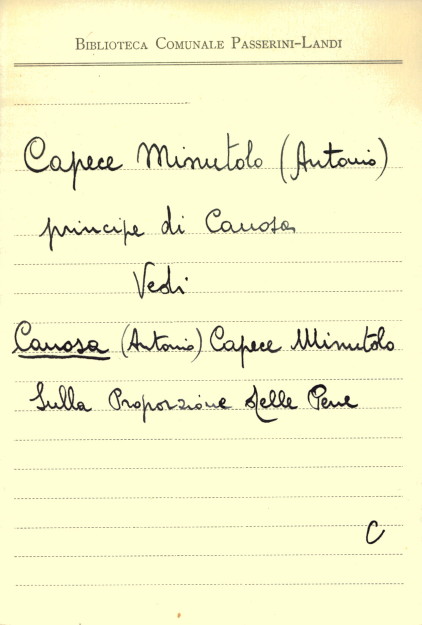 Biblioteca Comunale Passerini-Landi
Capece Minutolo (Antonio)
principe di Canosa
Vedi
Canosa (Antonio) Capece Minutolo
Sulla Proporzione delle Pene
C